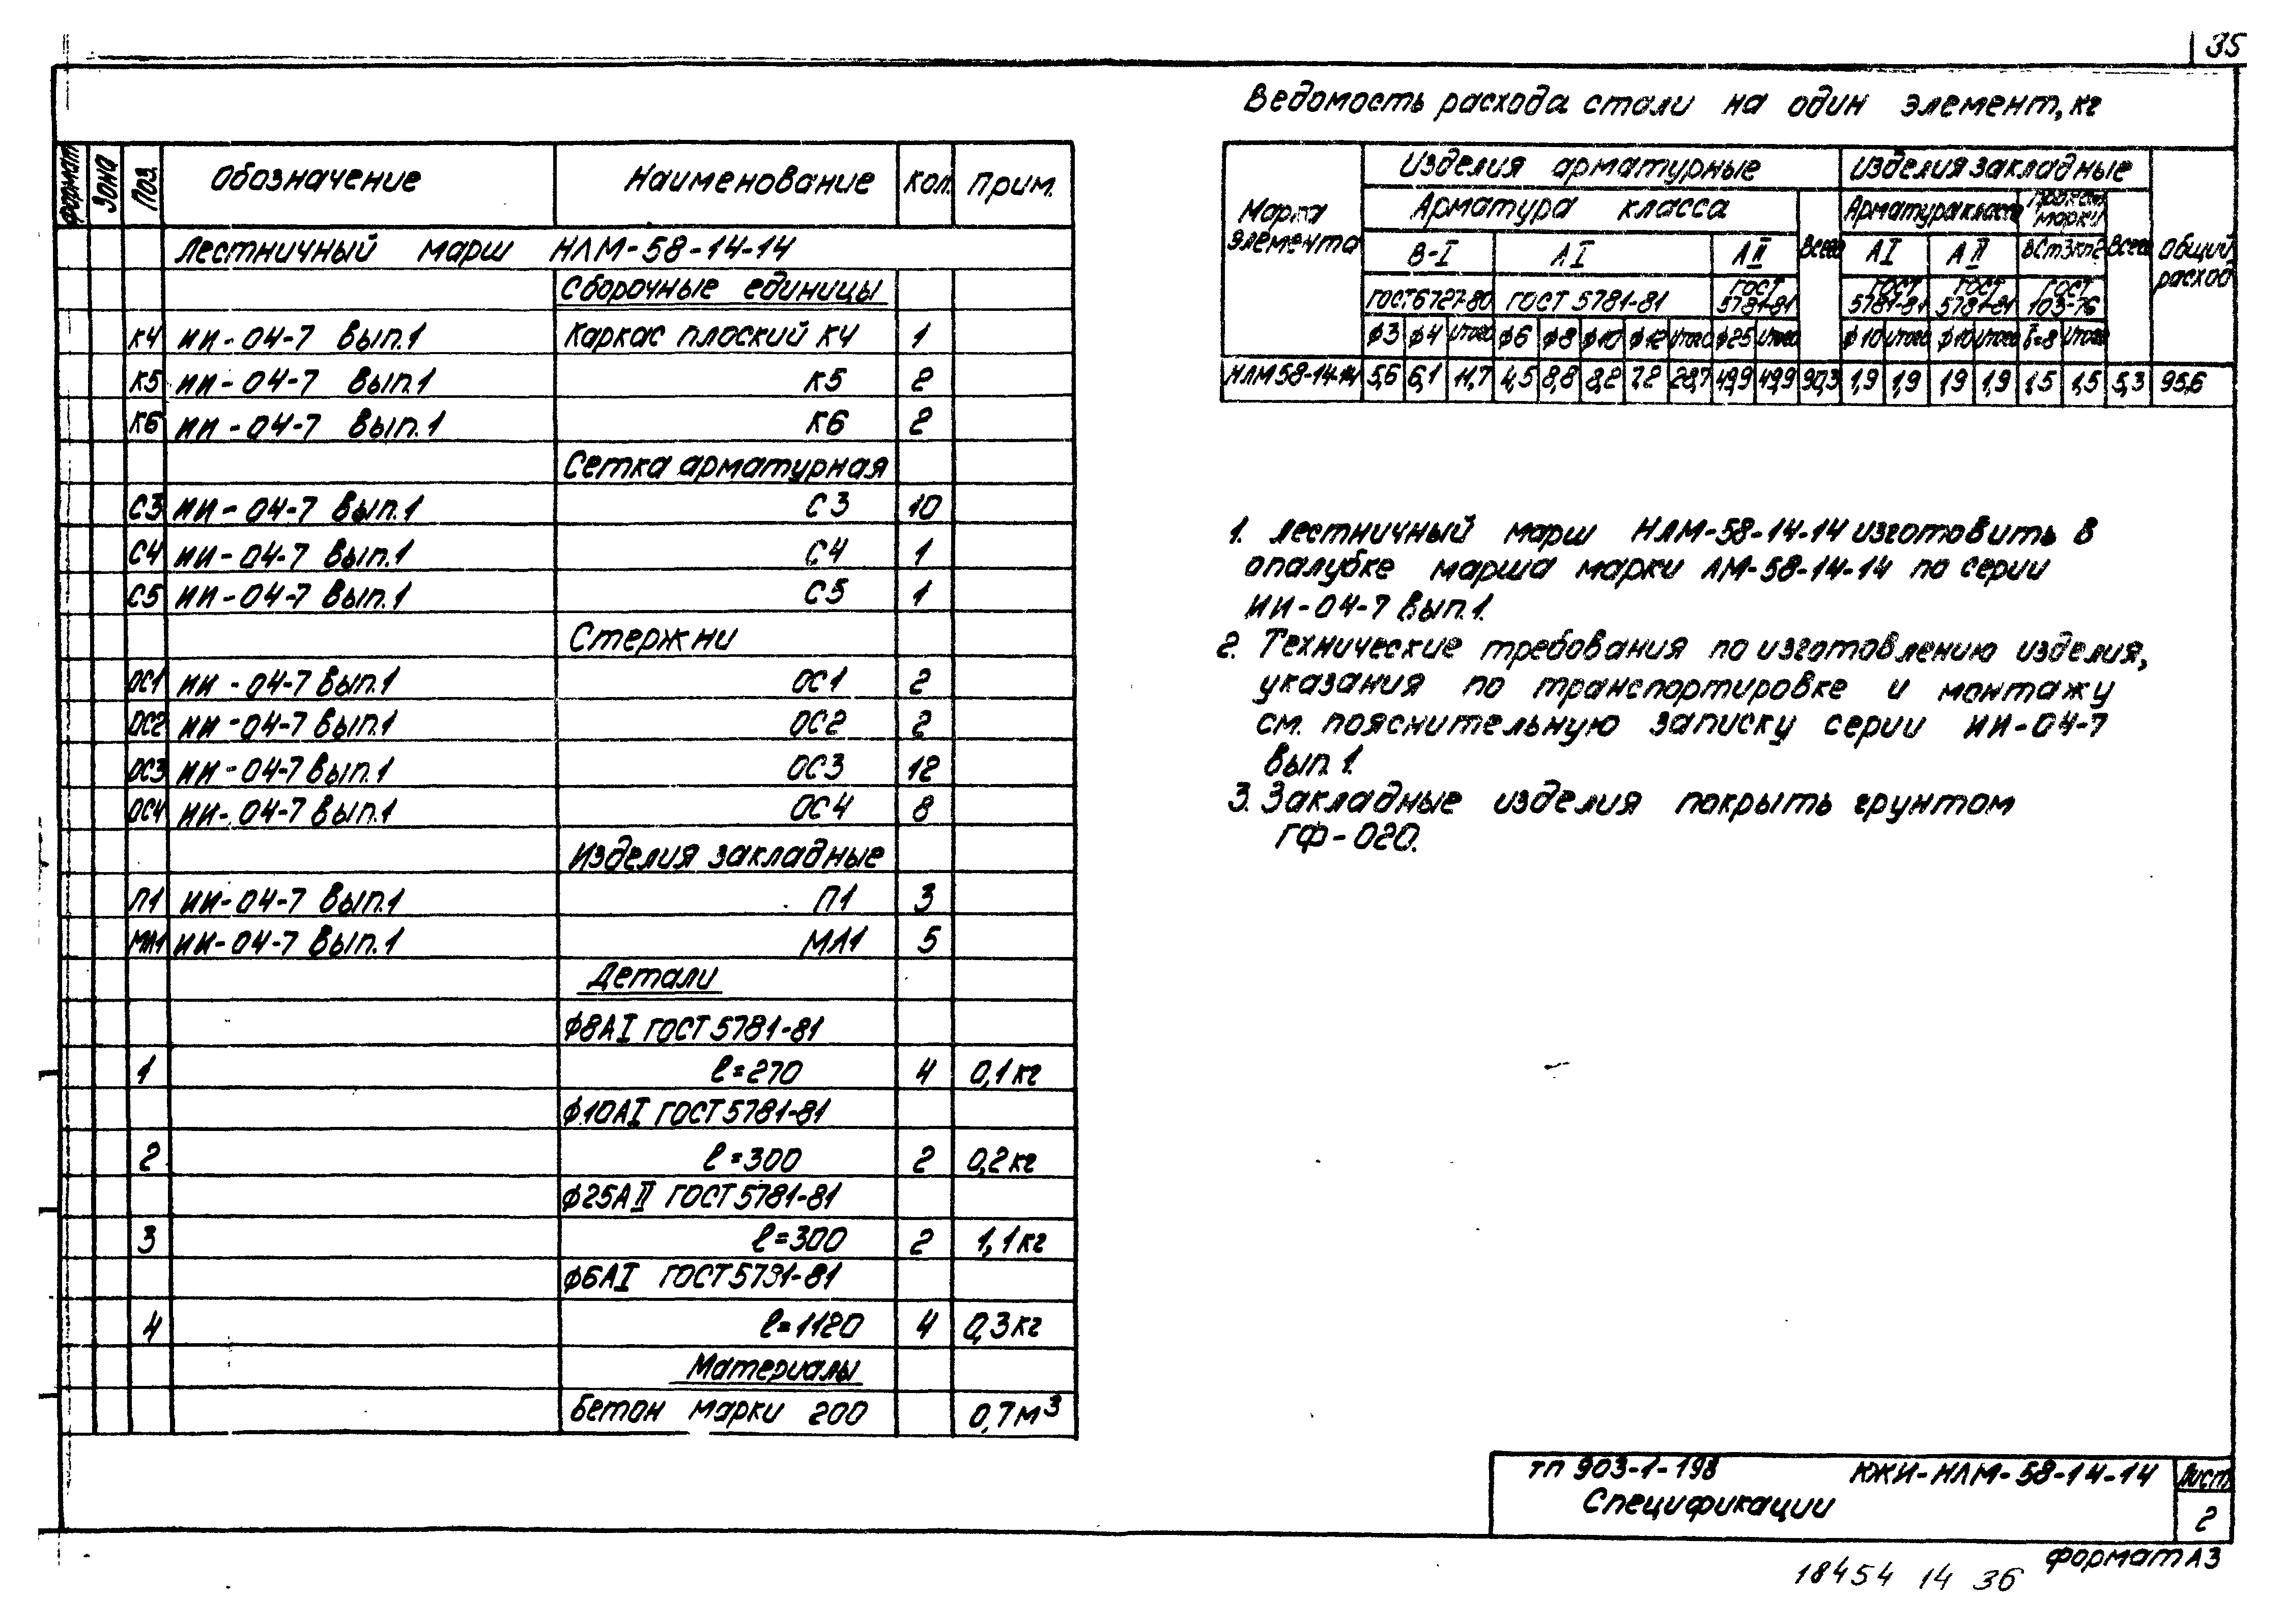 35
Ведомость расхода стали на один элемент, кг
Формат Зона Поз. Обозначение Наименование Кол. Прим.
Лестничный марш НЛМ-58-14-14
Сборочные единицы
К4 ИИ-04-7 Вып.1 Каркас плоский К4 1
К5 ИИ-04-7 Вып.1 К5 2
К6 ИИ-04-7 Вып.1 К6 2
Сетка арматурная
С3 ИИ-04-7 Вып.1 С3 10
С4 ИИ-04-7 Вып.1 С4 1
С5 ИИ-04-7 Вып.1 С5 1
Стержни
ОС1 ИИ-04-7 Вып.1 ОС1 2
ОС2 ИИ-04-7 Вып.1 ОС2 2
ОС3 ИИ-04-7 Вып.1 ОС3 12
ОС4 ИИ-04-7 Вып.1 ОС4 8
Изделия закладные
П1 ИИ-04-7 Вып.1 П1 3
МЛ1 ИИ-04-7 Вып.1 МЛ1 5
Детали
ф8АI ГОСТ 5781-81
1 ℓ=270 4 0,1кг
ф10АI ГОСТ 5781-81
2 ℓ=300 2 0,2кг
ф25АII ГОСТ 5781-81
3 ℓ=300 2 1,1кг
ф6АI ГОСТ 5781-81
4 ℓ=1120 4 0,3кг
Материалы
Бетон марки 200 0,7м³
Марка элемента
Изделия арматурные Изделия закладные
Арматура класса Всего Арматура класса Прокат марки Всего Общий расход
В-I АI АII АI АII ВСт3кп2
ГОСТ 6727-80 ГОСТ 5781-81 ГОСТ 5781-81 ГОСТ 5781-81 ГОСТ 5781-81 ГОСТ 103-76
ф3 ф4 Итого ф6 ф8 ф10 ф12 Итого ф25 Итого ф10 Итого ф10 Итого δ=8 Итого
НЛМ58-14-14 5,6 6,1 11,7 4,5 8,8 8,2 7,2 28,7 49,9 49,9 90,3 1,9 1,9 1,9 1,9 1,5 1,5 5,3 95,6
1. Лестничный марш НЛМ-58-14-14 изготовить в
опалубке марша марки ЛМ-58-14-14 по серии
ИИ-04-7 Вып.1.
2. Технические требования по изготовлению изделия,
указания по транспортировке и монтажу
см. пояснительную записку серии ИИ-04-7
Вып.1.
3. Закладные изделия покрыть грунтом
ГФ-020.
ТП 903-1-198 КЖИ-НЛМ-58-14-14 Лист
Спецификации 2
Формат А3
18454 14 36